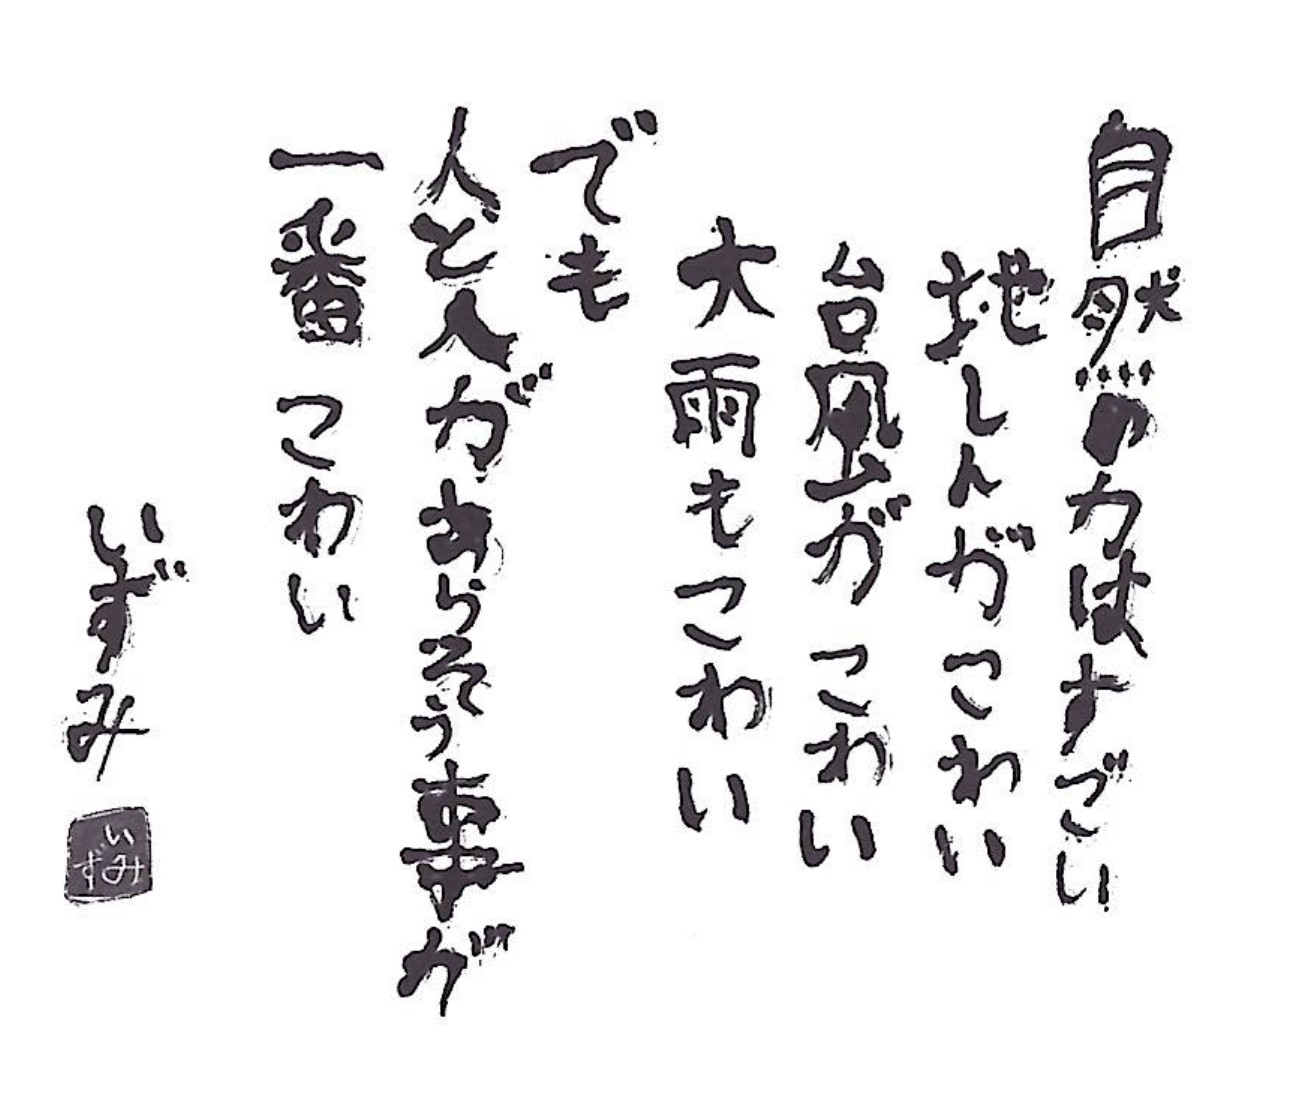 自然の力はすごい
地しんがこわい
台風がこわい
大雨もこわい
でも
人と人があらそう事が
一番こわい
いずみ
いずみ